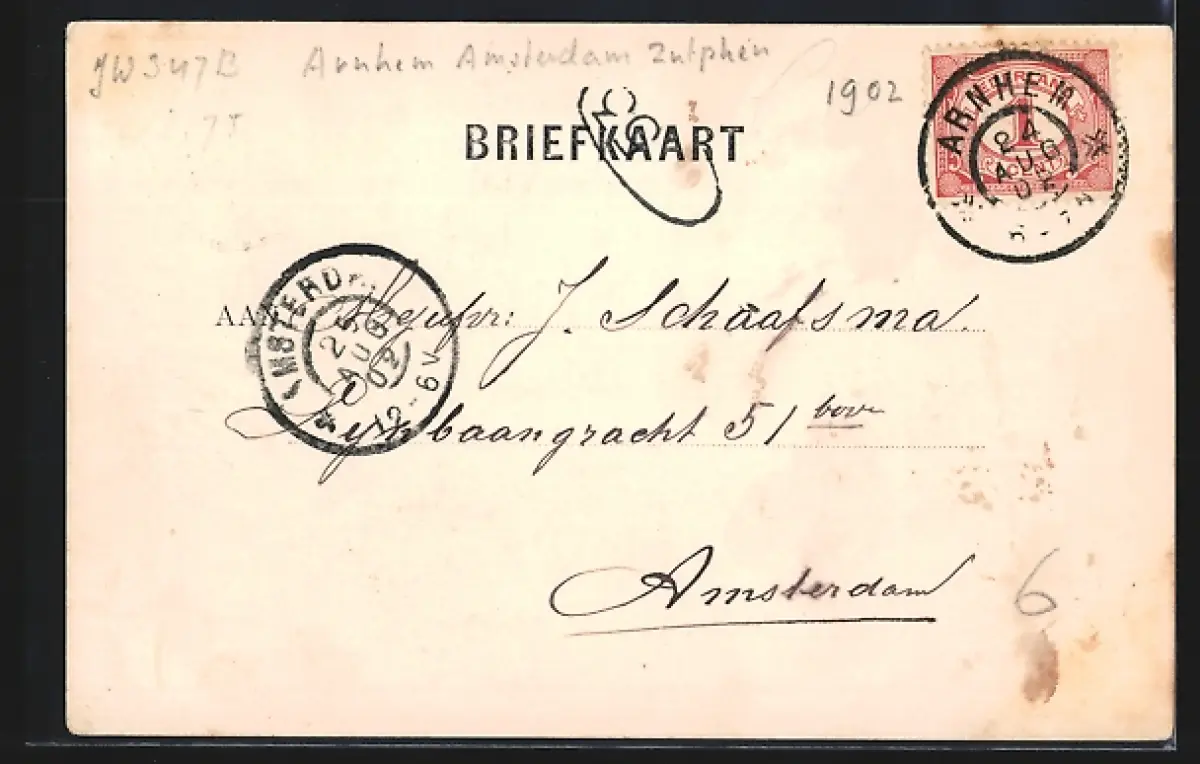 JW347B Arnhem Amsterdam Zutphen
1902
BRIEFKAART
NEDERLAND
1
CENT
ARNHEM
24
AUG
02
AMSTERDAM
25
AUG
02
12-6V
AAN Mejufvr: J. Schaafsma.
Lijnbaangracht 51 boven
Amsterdam
6